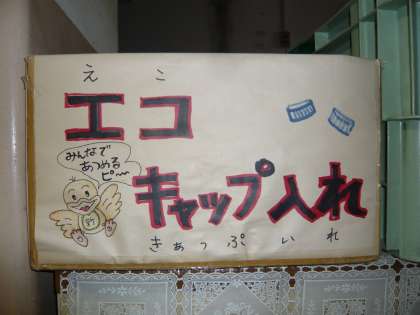 えこ
エコ
みんなで
あつめる
ピー
キャップ入れ
きゃっぷいれ